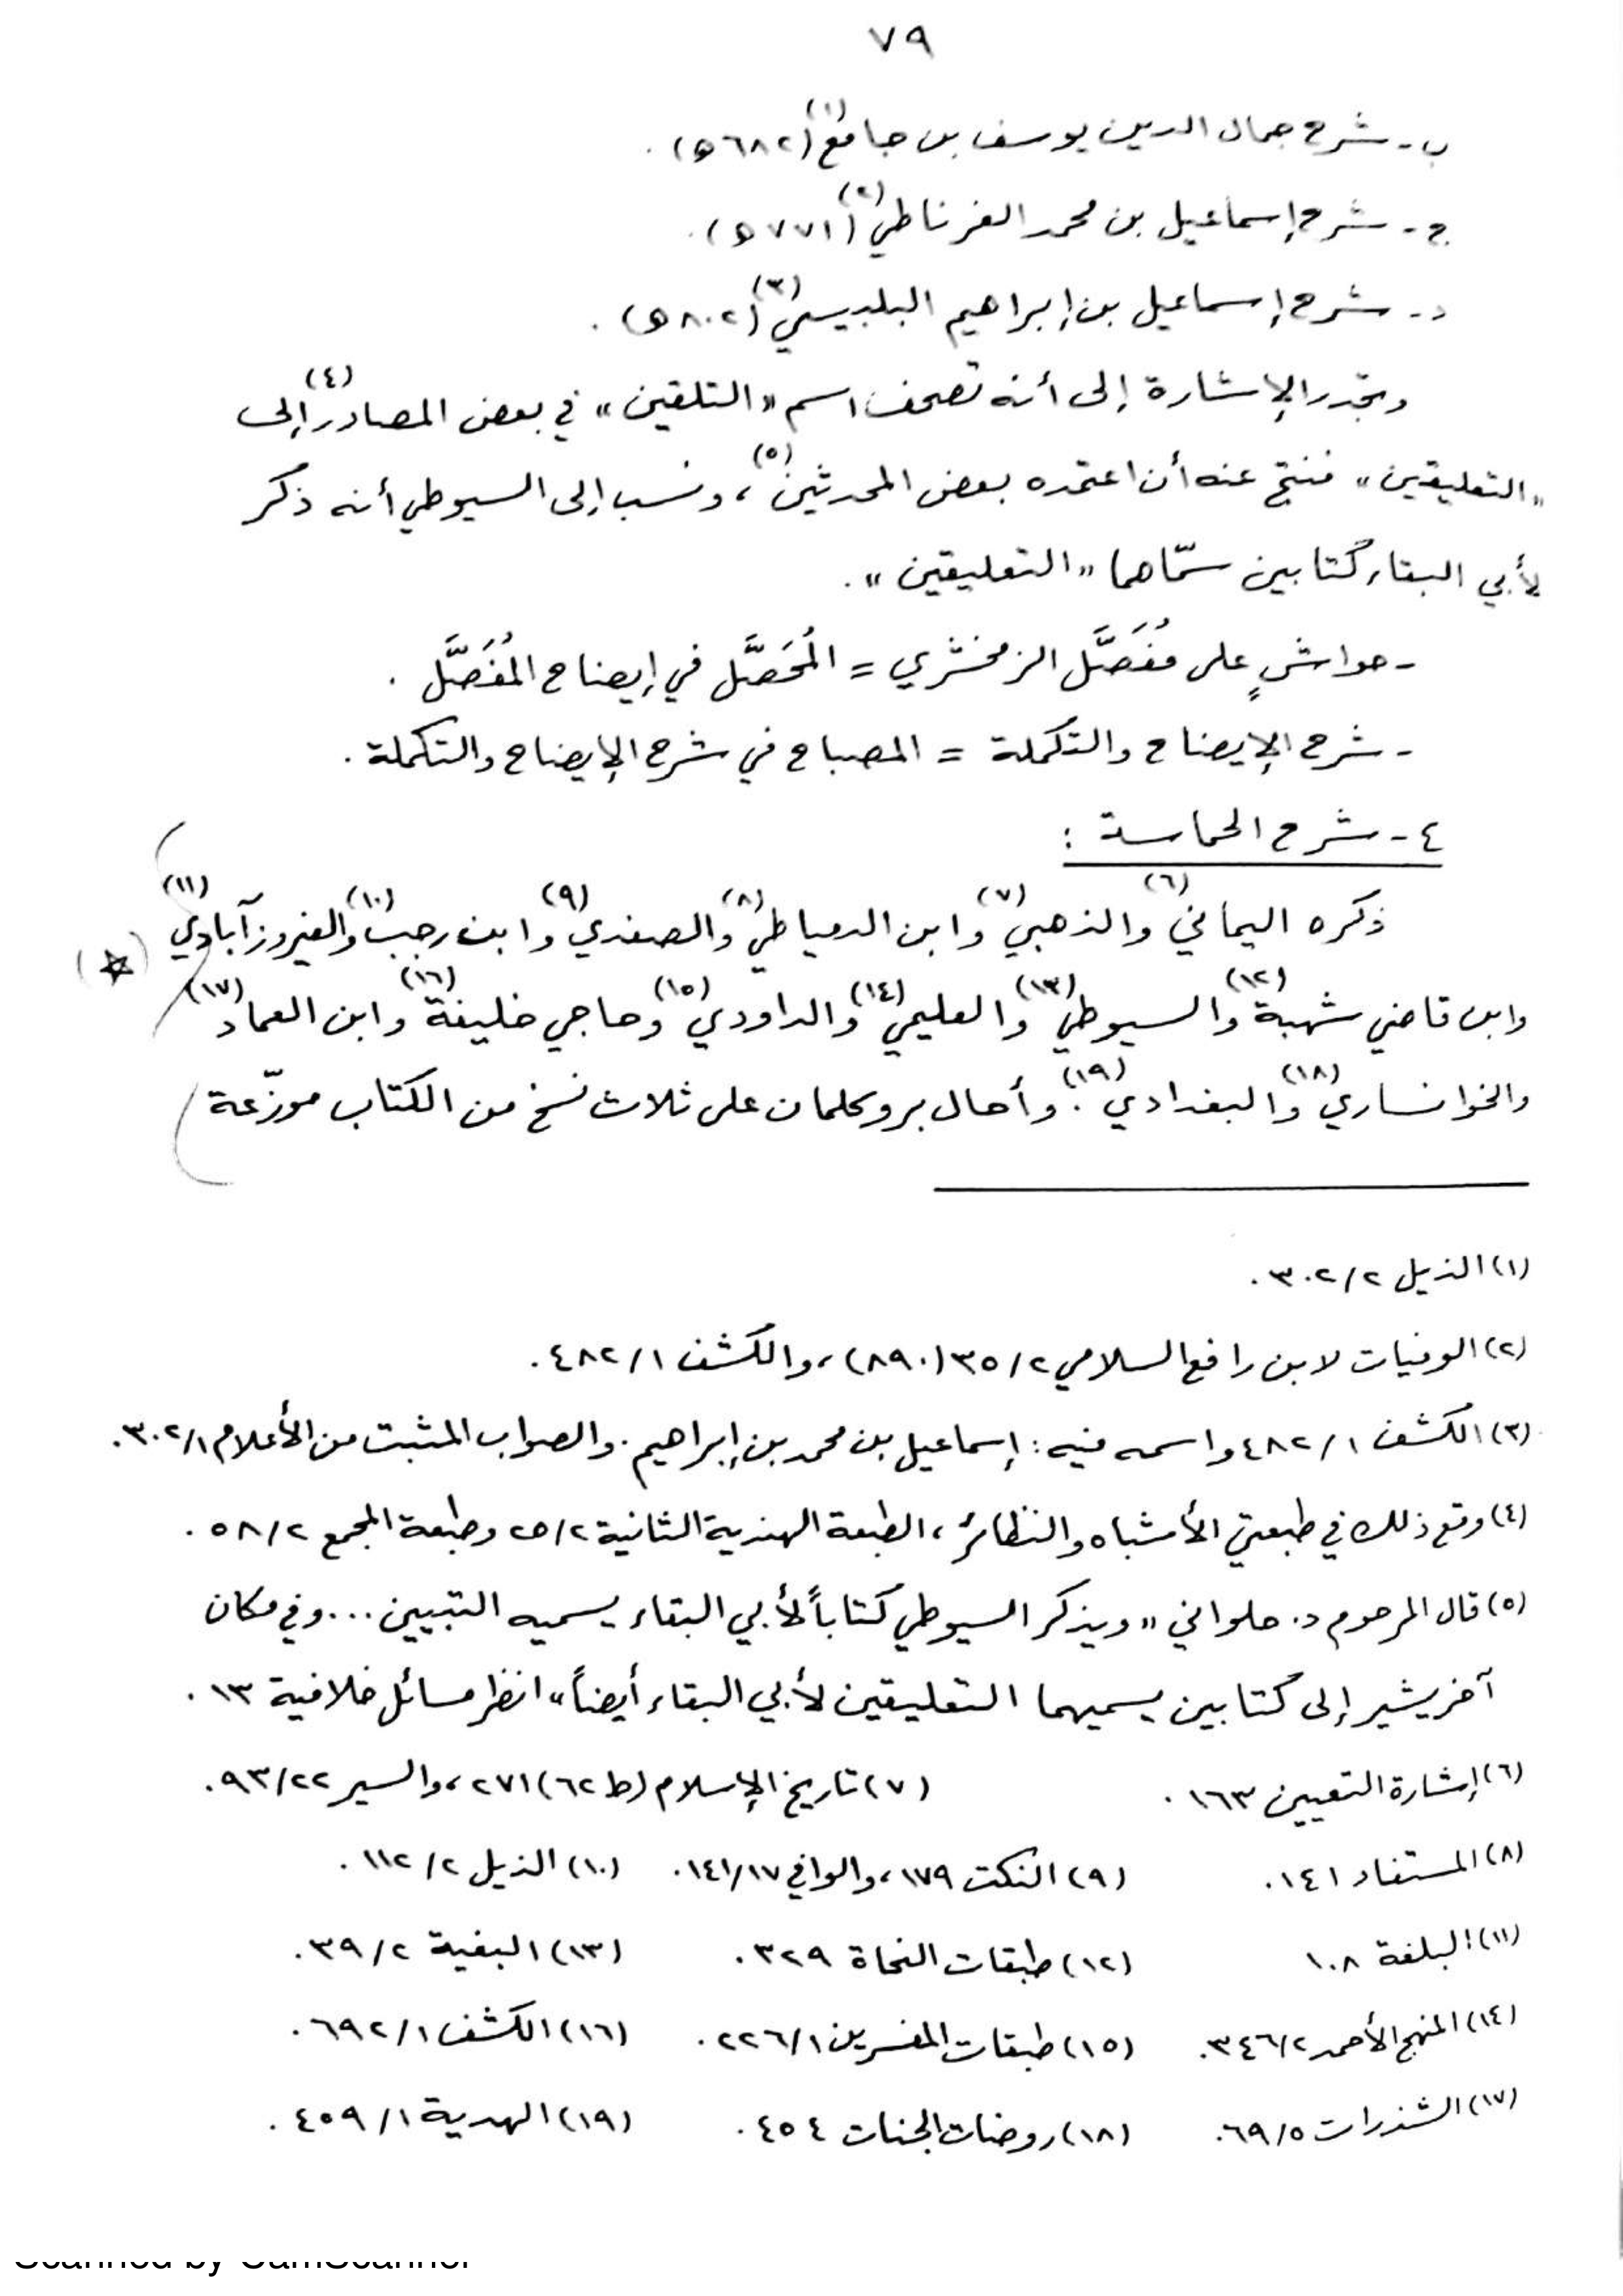 ٧٩
ب - شرح جمال الدين يوسف بن جامع(١) (٦٨٢ هـ) .
ج - شرح إسماعيل بن محمد الغرناطي(٢) (٧٧١ هـ) .
د - شرح إسماعيل بن إبراهيم البلبيسي(٣) (٨٠٢ هـ) .
وتجدر الإشارة إلى أنه تصحف اسم «التلقين» في بعض المصادر(٤) إلى
«التعليقين» فنتج عنه أن اعتمده بعض المحدثين(٥)، ونسب إلى السيوطي أنه ذكر
لأبي البقاء كتابين سمّاهما «التعليقين» .
- حواشٍ على مُفَصَّل الزمخشري = المُحَصَّل في إيضاح المُفَصَّل .
- شرح الإيضاح والتكملة = المصباح في شرح الإيضاح والتكملة .
٤ - شرح الحماسة :
ذكره اليماني(٦) والذهبي(٧) وابن الدمياطي(٨) والصفدي(٩) وابن رجب(١٠) والفيروزآبادي(١١)
وابن قاضي شهبة(١٢) والسيوطي(١٣) والعليمي(١٤) والداودي(١٥) وحاجي خليفة(١٦) وابن العماد(١٧)
والخوانساري(١٨) والبغدادي(١٩). وأحال بروكلمان على ثلاث نسخ من الكتاب موزّعة
(١) الذيل ٣٠٢/٢ .
(٢) الوفيات لابن رافع السلامي ٣٥/٢ (٨٩٠)، والكشف ٤٨٢/١ .
(٣) الكشف ٤٨٢/١ واسمه فيه : إسماعيل بن محمد بن إبراهيم . والصواب المثبت من الأعلام ٣٠٢/١ .
(٤) وقع ذلك في طبعتي الأشباه والنظائر، الطبعة الهندية الثانية ٢٥/٢ وطبعة المجمع ٥٨/٢ .
(٥) قال المرحوم د. حلواني «ويذكر السيوطي كتاباً لأبي البقاء يسميه التبيين ... وفي مكان
آخر يشير إلى كتابين يسميهما التعليقين لأبي البقاء أيضاً» انظر مسائل خلافية ١٣ .
(٦) إشارة التعيين ١٦٣ . (٧) تاريخ الإسلام (ط ٦٢) ٢٧١، والسير ٩٣/٢٢ .
(٨) المستفاد ١٤١ . (٩) النكت ١٧٩، والوافي ١٤١/١٧ . (١٠) الذيل ١١٢/٢ .
(١١) البلغة ١٠٨ (١٢) طبقات النحاة ٣٢٩ . (١٣) البغية ٣٩/٢ .
(١٤) المنهج الأحمد ٣٤٦/٢ . (١٥) طبقات المفسرين ٢٢٦/١ . (١٦) الكشف ٦٩٢/١ .
(١٧) الشذرات ٦٩/٥ . (١٨) روضات الجنات ٤٥٤ . (١٩) الهدية ٤٥٩/١ .
Scanned by CamScanner